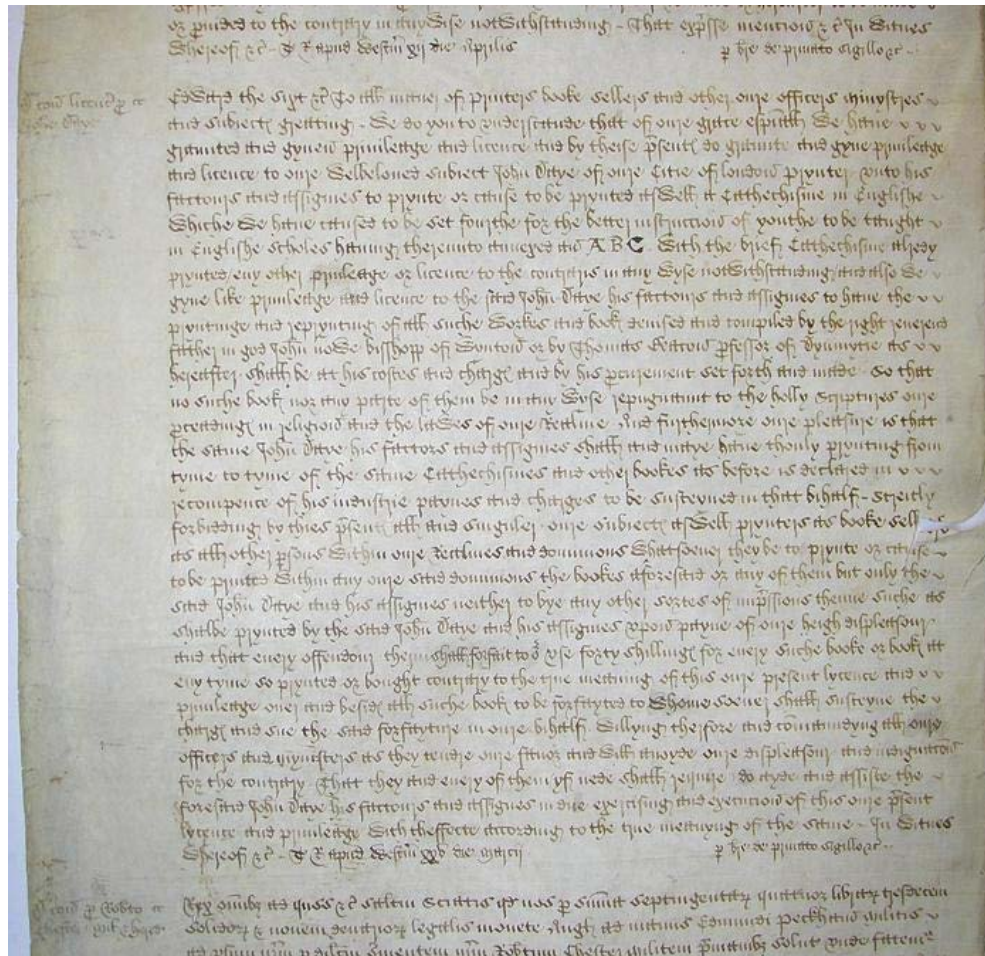 or provided to the contrary in any wise notwithstanding - That expresse mencion &c In witnes
whereof &c - T R apud Westm xii die Aprilis p bre de privato sigillo &c -
Edward the Sixt &c To all maner of printers booke sellers and other oure officers mynystres
and subiectes greating - We do you to understande that of oure grace especiall We have
graunted and gyven priviledge and licence and by theise presentes do graunte and gyve priviledge
and licence to oure welbeloved subiect John Daye of oure Citie of london prynter unto his
factours and assignes to prynte or cause to be prynted aswell a Cathechisme in Englishe
whiche We have caused to be set fourthe for the better instruccion of youthe to be taught
in Englishe scholes having thereunto annexed an A B C with the brief Cathechisme alredy
prynted eny other priviledge or licence to the contrarie in any wyse notwithstanding and also we
gyve like priviledge and licence to the said John Daye his factours and assignes to have the
pryntinge and reprynting of all suche workes and bookes devised and compiled by the right reverend
father in god John nowe bisshopp of Wynton or by Thomas Beacon professor of Dyvynytie as
hereafter shall be at his costes and charges and by his procurement set forth and made So that
no suche bookes nor any parte of them be in any wyse repugnant to the holly Scriptures oure
proceadinges in religion and the lawes of oure Realme And furthermore oure pleasure is that
the same John Daye his factors and assignes shall and maye have thonly prynting from
tyme to tyme of the same Cathechismes and other bookes as before is declared in
recompence of his industrie paynes and charges to be susteyned in that bihalf - Streitly
forbidding by thies presentes all and singuler oure subiectes aswell prynters as booke
as all other persons within oure Realmes and dominions whatsoever they be to prynte or cause
to be printed within any oure said dominions the bookes aforesaid or any of them but only the
said John Daye and his assignes neither to bye any other sortes of impressions thenne suche as
shalbe prynted by the said John Daye and his assignes upon payne of oure heigh displeasour
and that every offendour therin shall forfait to oure use forty shillinges for every suche booke or bookes at
eny tyme so prynted or bought contrary to the true meaning of this oure present lycence and
priviledge over and besides all suche bookes to be forfayted to whome soever shall susteyne the
charges and sue the said forfayture in oure bihalf Willyng therfore and commaundyng all oure
officers and mynisters as they tendre oure favour and will avoyde oure displeasour and indignacion
for the contrary That they and every of them yf nede shall require do ayde and assiste the
foresaid John Daye his factours and assignes in due exercising and execucion of this oure present
lycence and priviledge with theffecte according to the true meanyng of the same - In witnes
whereof &c - T R apud Westm xxv die Marcii p bre de privato sigillo &c -
Rex omnibus ad quos &c saltm Sciatis qd nos p summa septingentarum quatuor librarum tresdecem
solidorum & novem denariorum legalis monete Anglie ad manus Edmundi Peckham militis
Robtum Chester militem